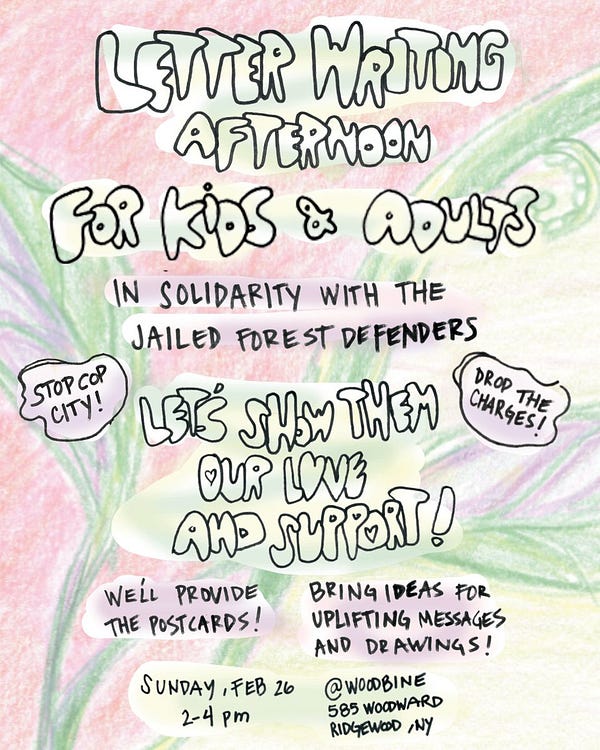 LETTER WRITING
AFTERNOON
FOR KiDS & ADULTS
IN SOLIDARITY WITH THE
JAILED FOREST DEFENDERS
STOP COP
CITY!
DROP THE
CHARGES!
LET'S SHOW THEM
OUR LOVE
AND SUPPORT!
WE'LL PROVIDE
THE POSTCARDS!
BRING IDEAS FOR
UPLIFTING MESSAGES
AND DRAWINGS!
SUNDAY, FEB 26
2-4 pm
@WOODBINE
585 WOODWARD
RIDGEWOOD, NY